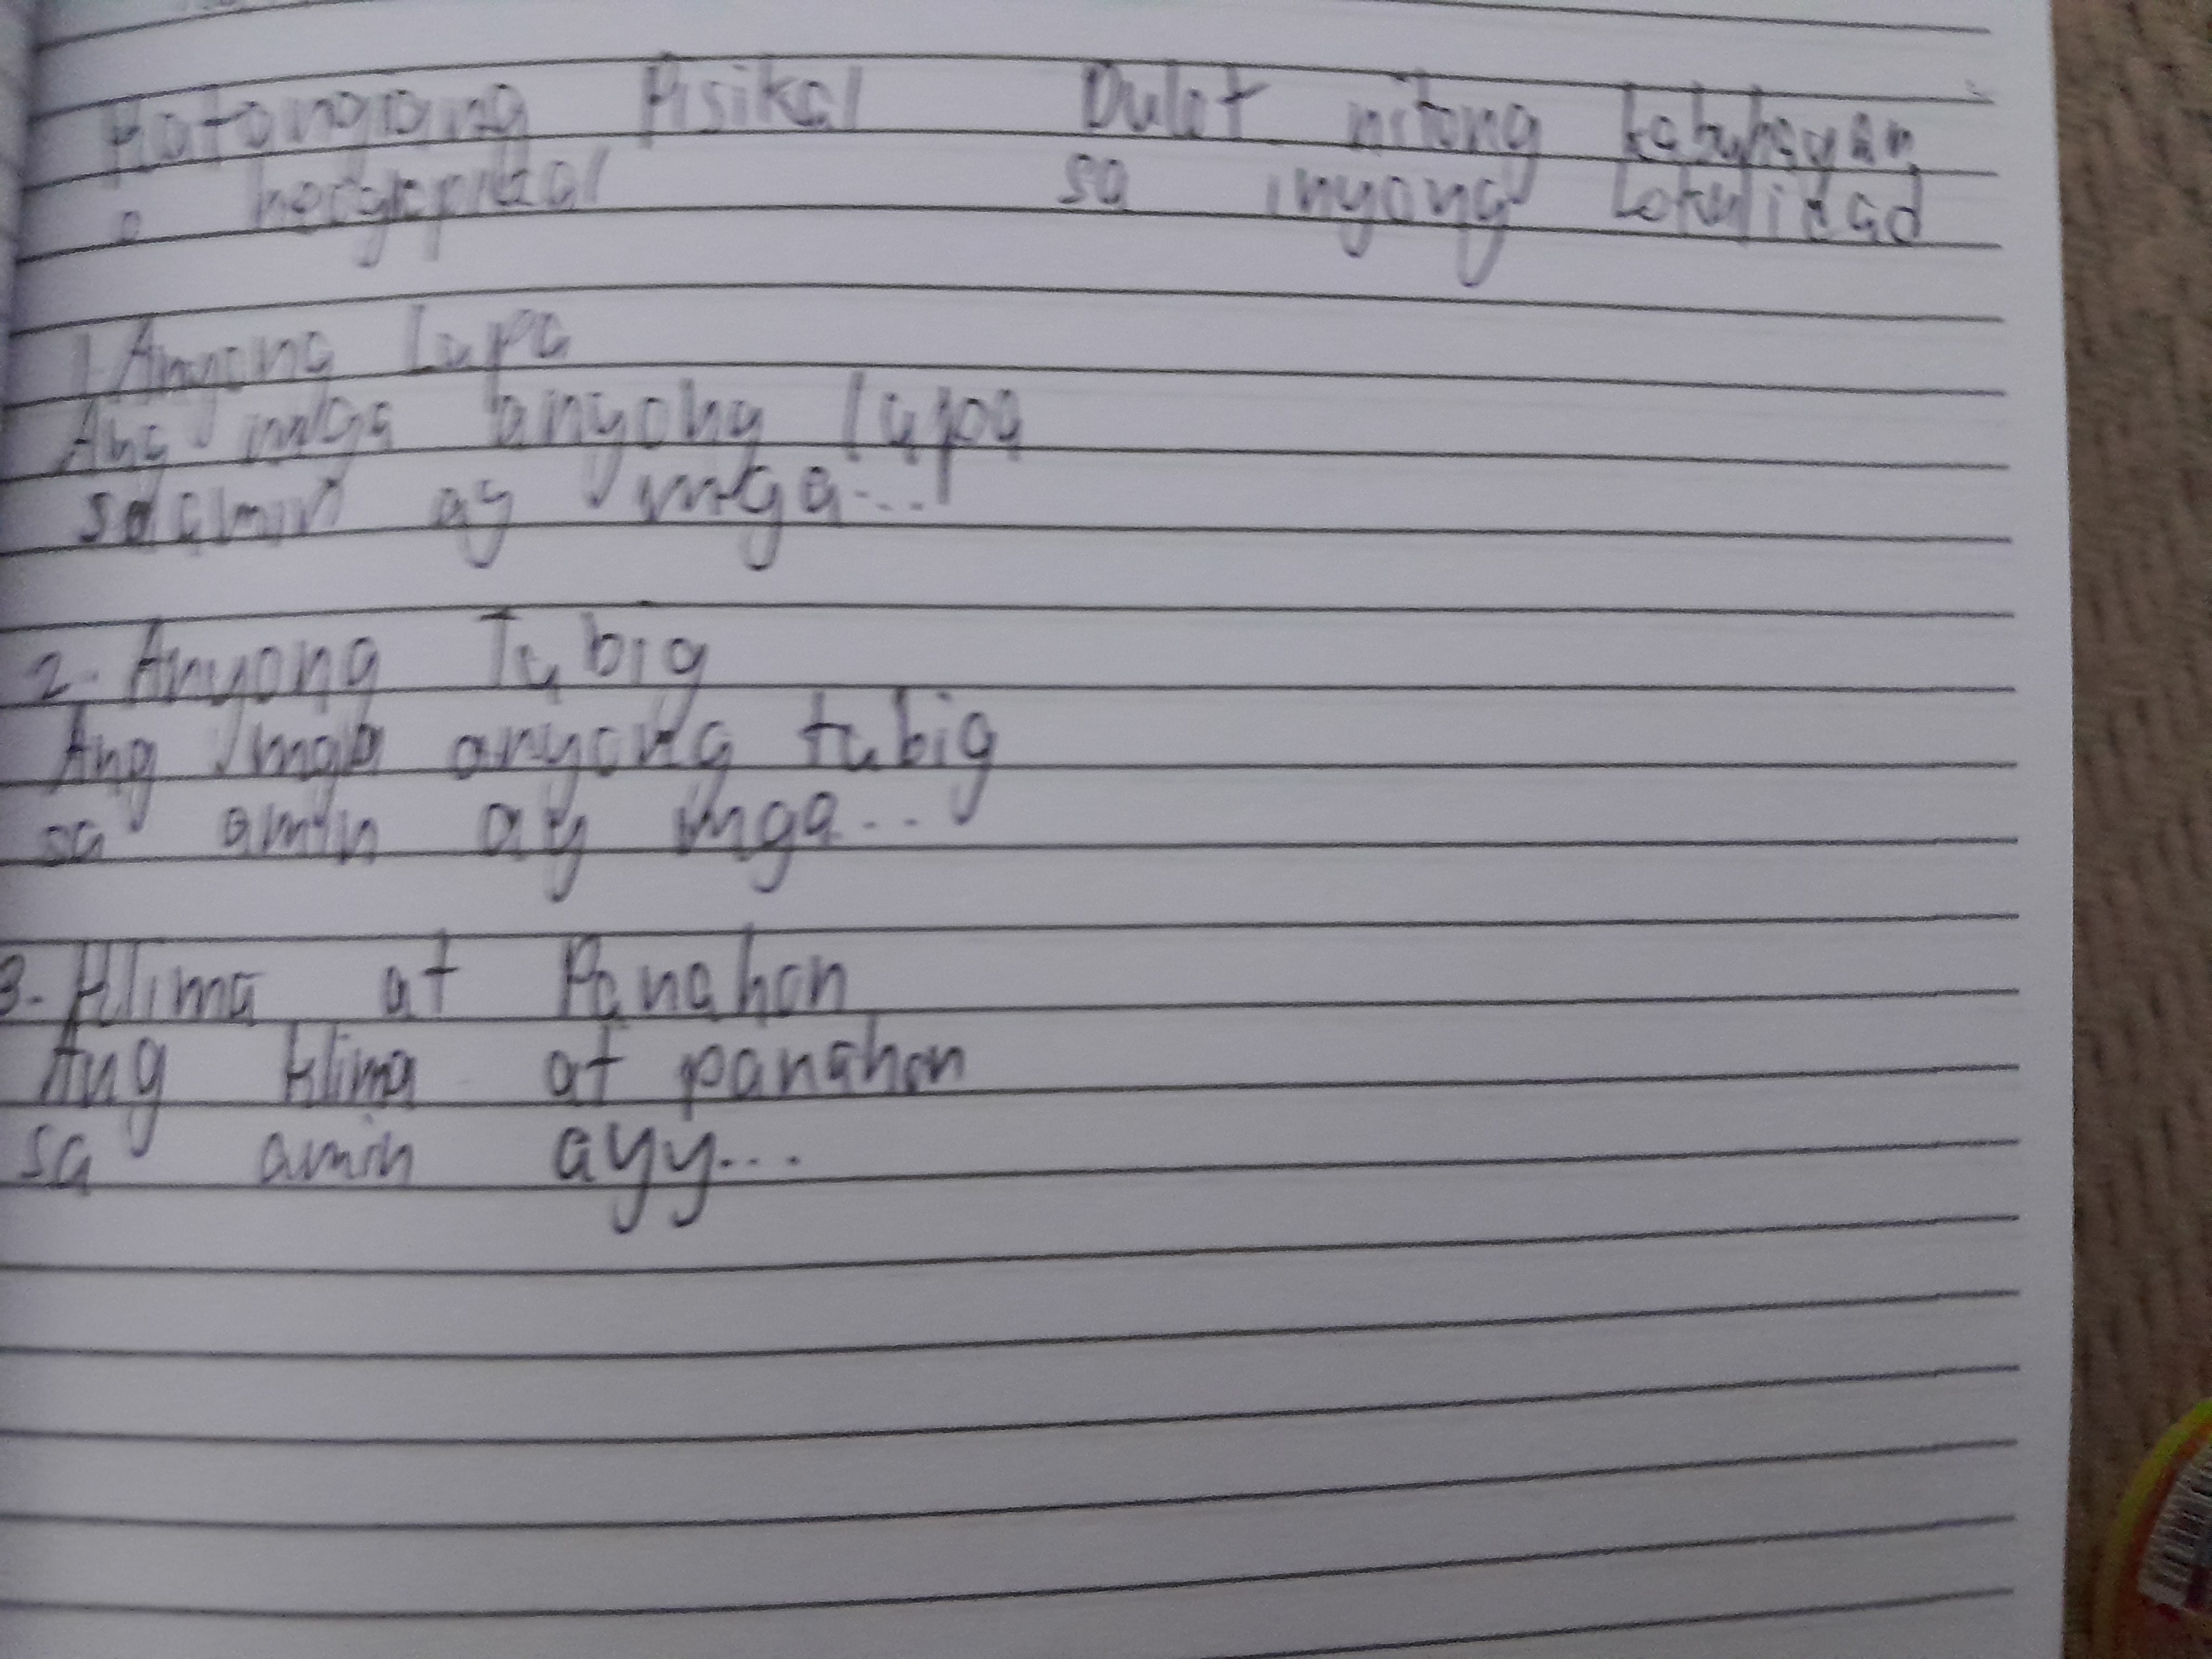 Katangiang Pisikal Dulot nitong Kabuhayan
o heograpikal sa inyong Lokalidad
1. Anyong Lupa
Ang mga anyong Lupa
sa amin ay mga...
2. Anyong Tubig
Ang mga anyong tubig
sa amin ay mga...
3. Klima at Panahon
Ang klima at panahon
sa amin ayy...